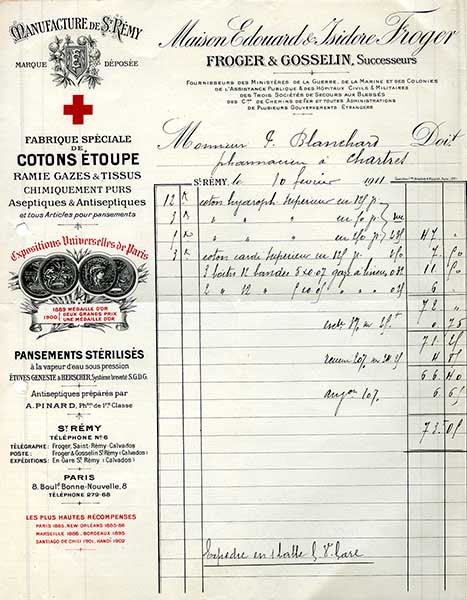 MANUFACTURE DE St. RÉMY
MARQUE DÉPOSÉE
FABRIQUE SPÉCIALE
DE
COTONS ÉTOUPE
RAMIE GAZES & TISSUS
CHIMIQUEMENT PURS
Aseptiques & Antiseptiques
et tous Articles pour pansements
Expositions Universelles de Paris
1889 MÉDAILLE D'OR
1900 DEUX GRANDS PRIX
UNE MÉDAILLE D'OR
PANSEMENTS STÉRILISÉS
à la vapeur d'eau sous pression
ÉTUVES GENESTE & HERSCHER, Système breveté S.G.D.G.
Antiseptiques préparés par
A. PINARD, Phen de 1re Classe
St RÉMY
TÉLÉPHONE No 6
TÉLÉGRAPHE: Froger, Saint-Rémy-Calvados
POSTE: Froger & Gosselin St Rémy (Calvados)
EXPÉDITIONS: En Gare St Rémy (Calvados)
PARIS
8, Bould Bonne-Nouvelle, 8
TÉLÉPHONE 279-68
LES PLUS HAUTES RÉCOMPENSES
PARIS 1885, NEW ORLÉANS 1885-86
MARSEILLE 1886, BORDEAUX 1895
SANTIAGO DE CHILI 1901, HANOÏ 1902
Maison Edouard & Isidore Froger
FROGER & GOSSELIN, Successeurs
FOURNISSEURS DES MINISTÈRES DE LA GUERRE, DE LA MARINE ET DES COLONIES
DE L'ASSISTANCE PUBLIQUE & DES HÔPITAUX CIVILS & MILITAIRES
DES TROIS SOCIÉTÉS DE SECOURS AUX BLESSÉS
DES Cies DE CHEMINS DE FER ET TOUTES ADMINISTRATIONS
DE PLUSIEURS GOUVERNEMENTS ÉTRANGERS
Monsieur J. Blanchard Doit
pharmacien à Chartres
St RÉMY, le 10 février 1911
12 K coton hydroph Supérieur en 125 p.
3 K " " " en 50 p.
1 K " " " en 250 p. 47 "
3 K coton cardé Supérieur en 125 p. 7 50
3 boites 12 bandes 5 x 07 gaze à 11 50
2 " 12 " 6 "
72 "
0 75
71 25
4 85
66 40
10% 6 65
73 05
Expédié en 1 balle G. V. Gare